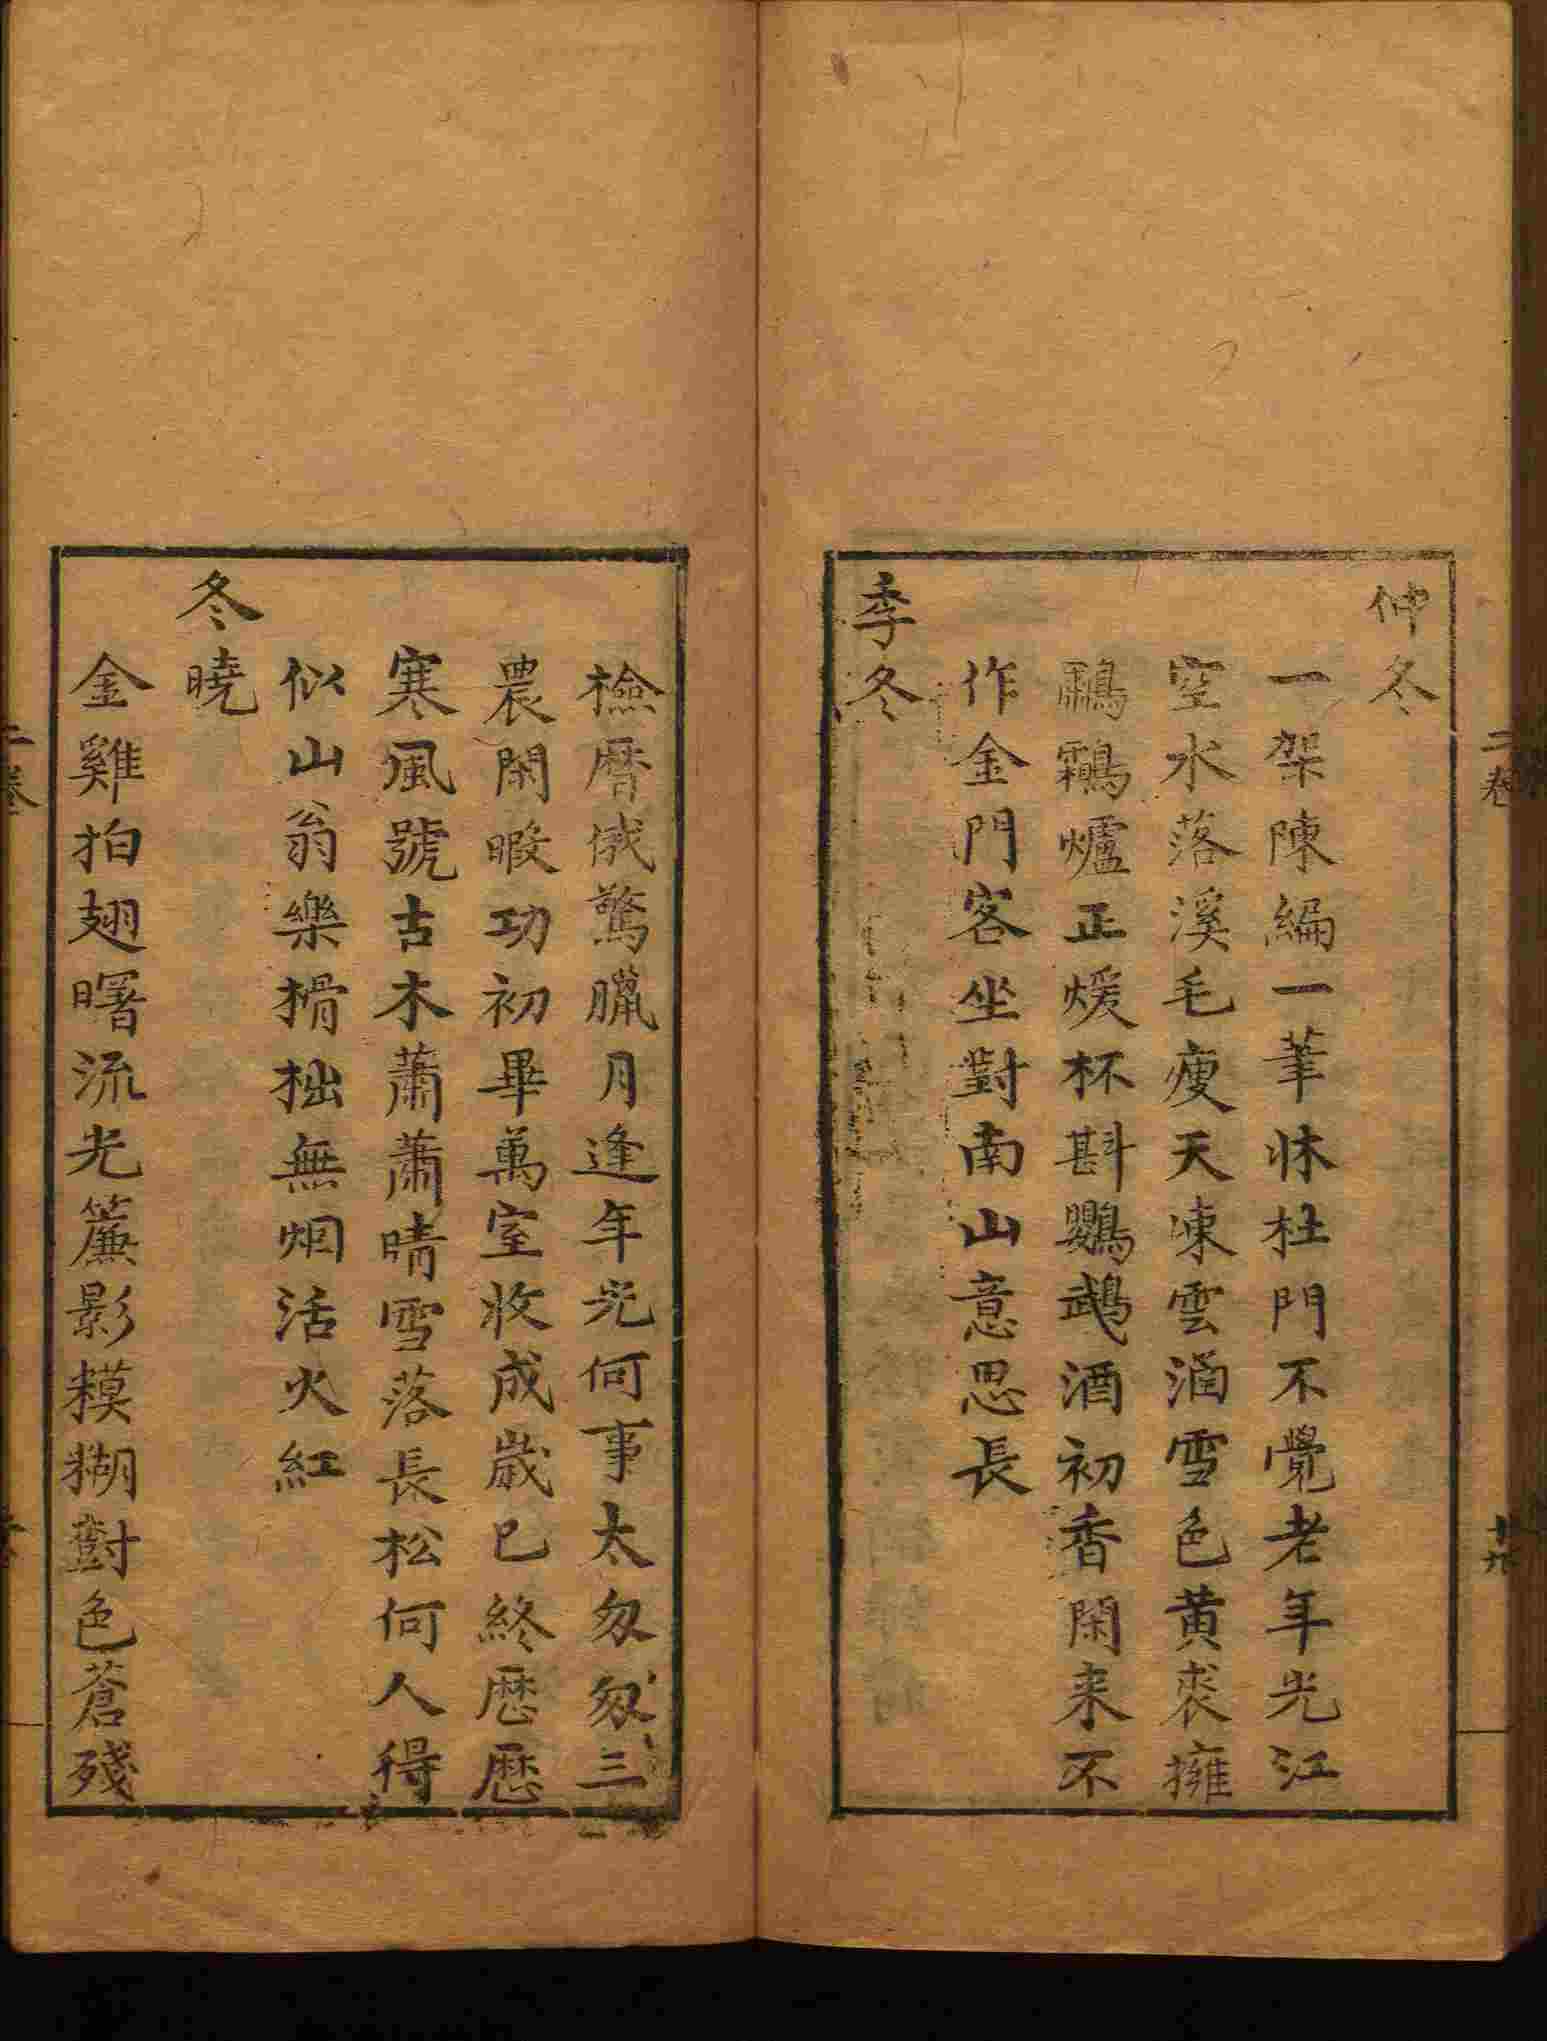 仲冬
一架陳編一筆牀杜門不覺老年光江
空水落溪毛瘦天凍雲涵雪色黄裘擁
鷫鸘爐正煖杯斟鸚鵡酒初香閑来不
作金門客坐對南山意思長
季冬
二卷
檢曆俄驚臘月逢年光何事太匆匆三
農閑暇功初畢萬室收成歲已終歴歴
寒風號古木蕭蕭晴雪落長松何人得
似山翁樂榾柮無烟活火紅
冬曉
金雞拍翅曙流光簾影糢糊對色蒼殘
二卷